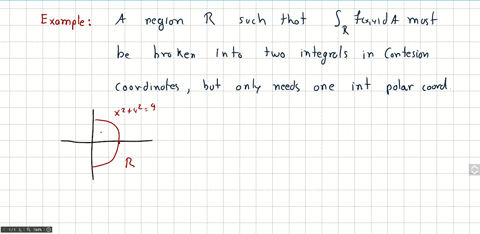 Example: A region R such that ∫_R f(x,y)dA must
be broken into two integrals in Cartesion
coordinates, but only needs one int polar coord.
x²+y²=9
R